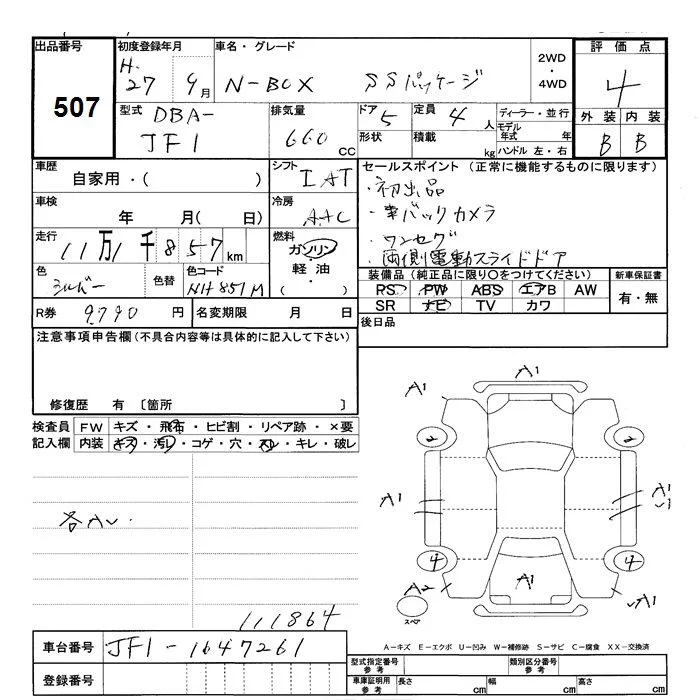 出品番号 初度登録年月 車名・グレード 2WD ・ 4WD 評価点
507 H. 27年 9月 N-BOX SSパッケージ 4
型式 DBA- JF1 排気量 660 cc ドア 5 定員 4人 ディーラー・並行 外装 内装
形状 積載 kg モデル年式 年 ハンドル 左・右 B B
車歴 自家用・( ) シフト IAT セールスポイント (正常に機能するものに限ります)
・初出品
車検 年 月( 日) 冷房 AAC
・バックカメラ
走行 11万1千857km 燃料 ガソリン 軽油 ・( )
・ワンセグ
・両側電動スライドドア
色 シルバー 色替 色コード NH851M
装備品 (純正品に限り○をつけてください) 新車保証書
RS PW ABS エアB AW 有・無
SR ナビ TV カワ
R券 9790円 名変期限 月 日
後日品
注意事項申告欄(不具合内容等は具体的に記入して下さい)
修復歴 有 〔箇所 〕
検査員 FW キズ・飛石・ヒビ割・リペア跡・×要
記入欄 内装 キズ・汚れ・コゲ・穴・スレ・キレ・破レ
A1
A1
2 2
各A
A1 A1
4 4
A2 A1 A1
スペア
111864
A−キズ E−エクボ U−凹み W−補修跡 S−サビ C−腐食 XX−交換済
車台番号 JF1-1647261
型式指定番号 参考 類別区分番号 参考
登録番号
車庫証明用 参考 長さ cm 幅 cm 高さ cm